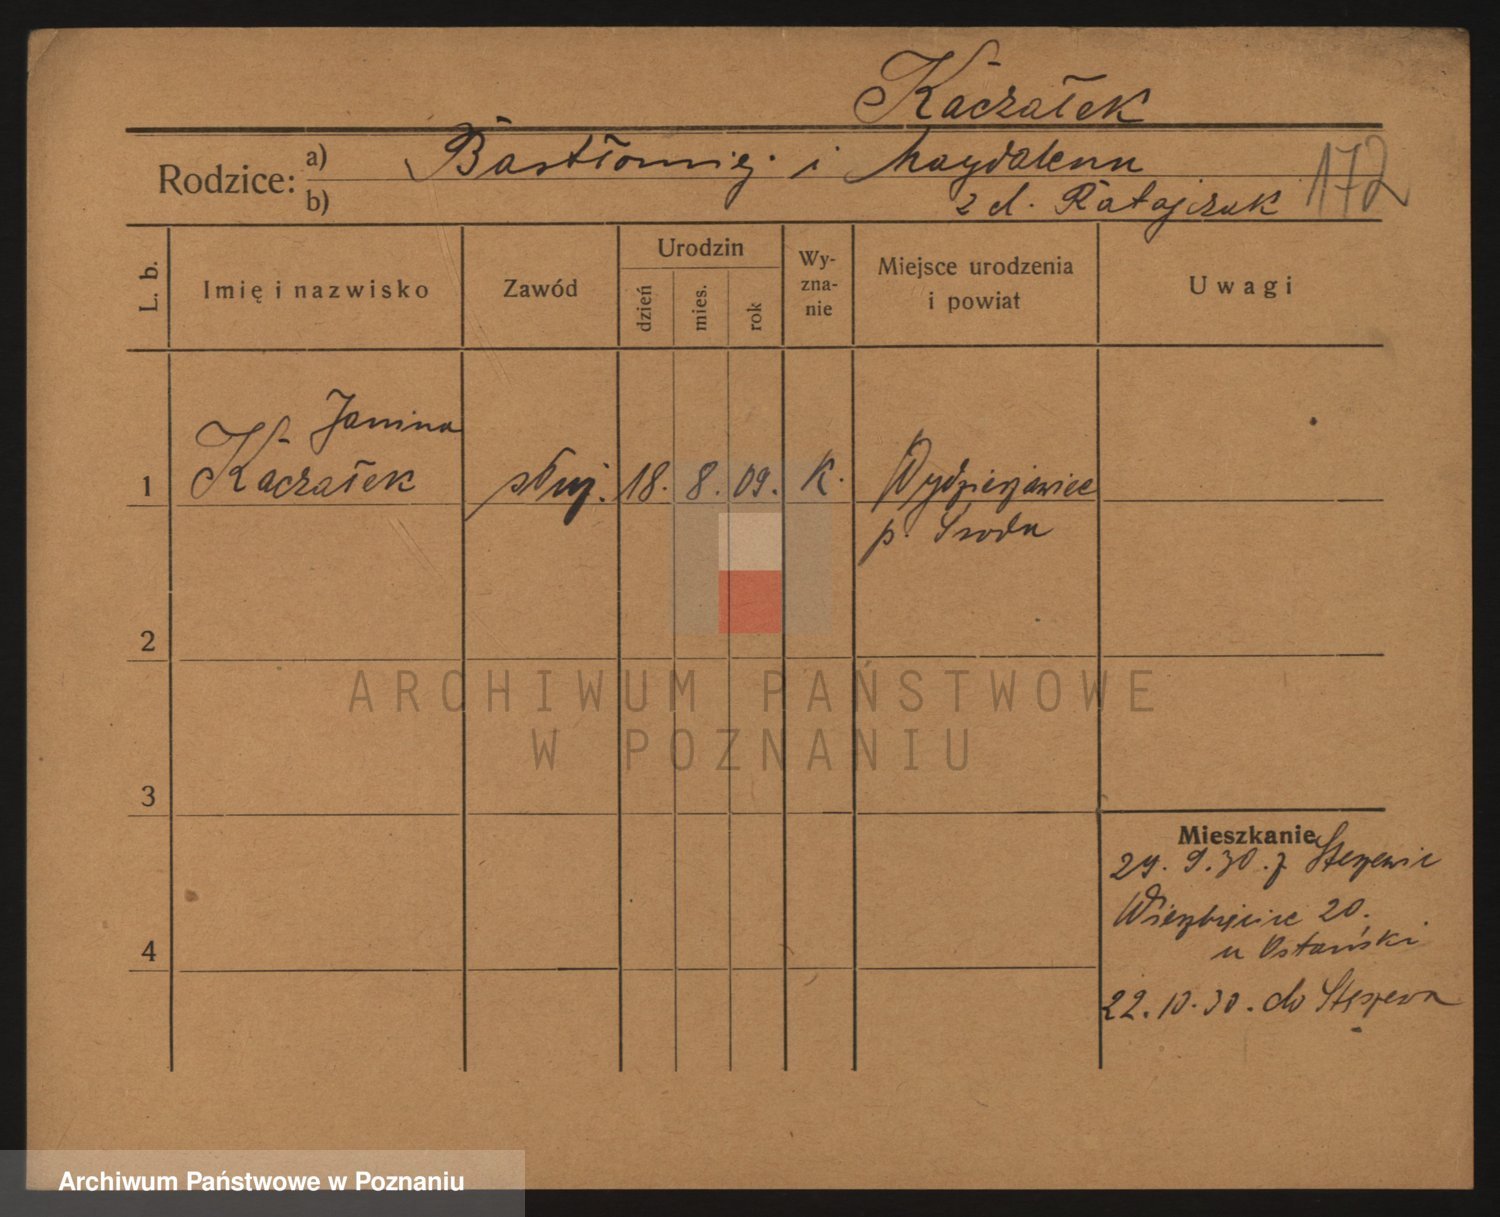 Kaczałek
Rodzice: a) Bartłomiej i Magdalena
b) z d. Ratajczak 172
L. b. Imię i nazwisko Zawód Urodzin dzień mies. rok Wy-zna-nie Miejsce urodzenia i powiat Uwagi
Janina
1 Kaczałek służ. 18. 8. 09. K. Wydzierzewice
p. Środa
2
ARCHIWUM PAŃSTWOWE
W POZNANIU
3
Mieszkanie
29. 9. 30. z
Wierzbięcice 20.
4
u Ostański
22. 10. 30. do Stęszewa
Archiwum Państwowe w Poznaniu